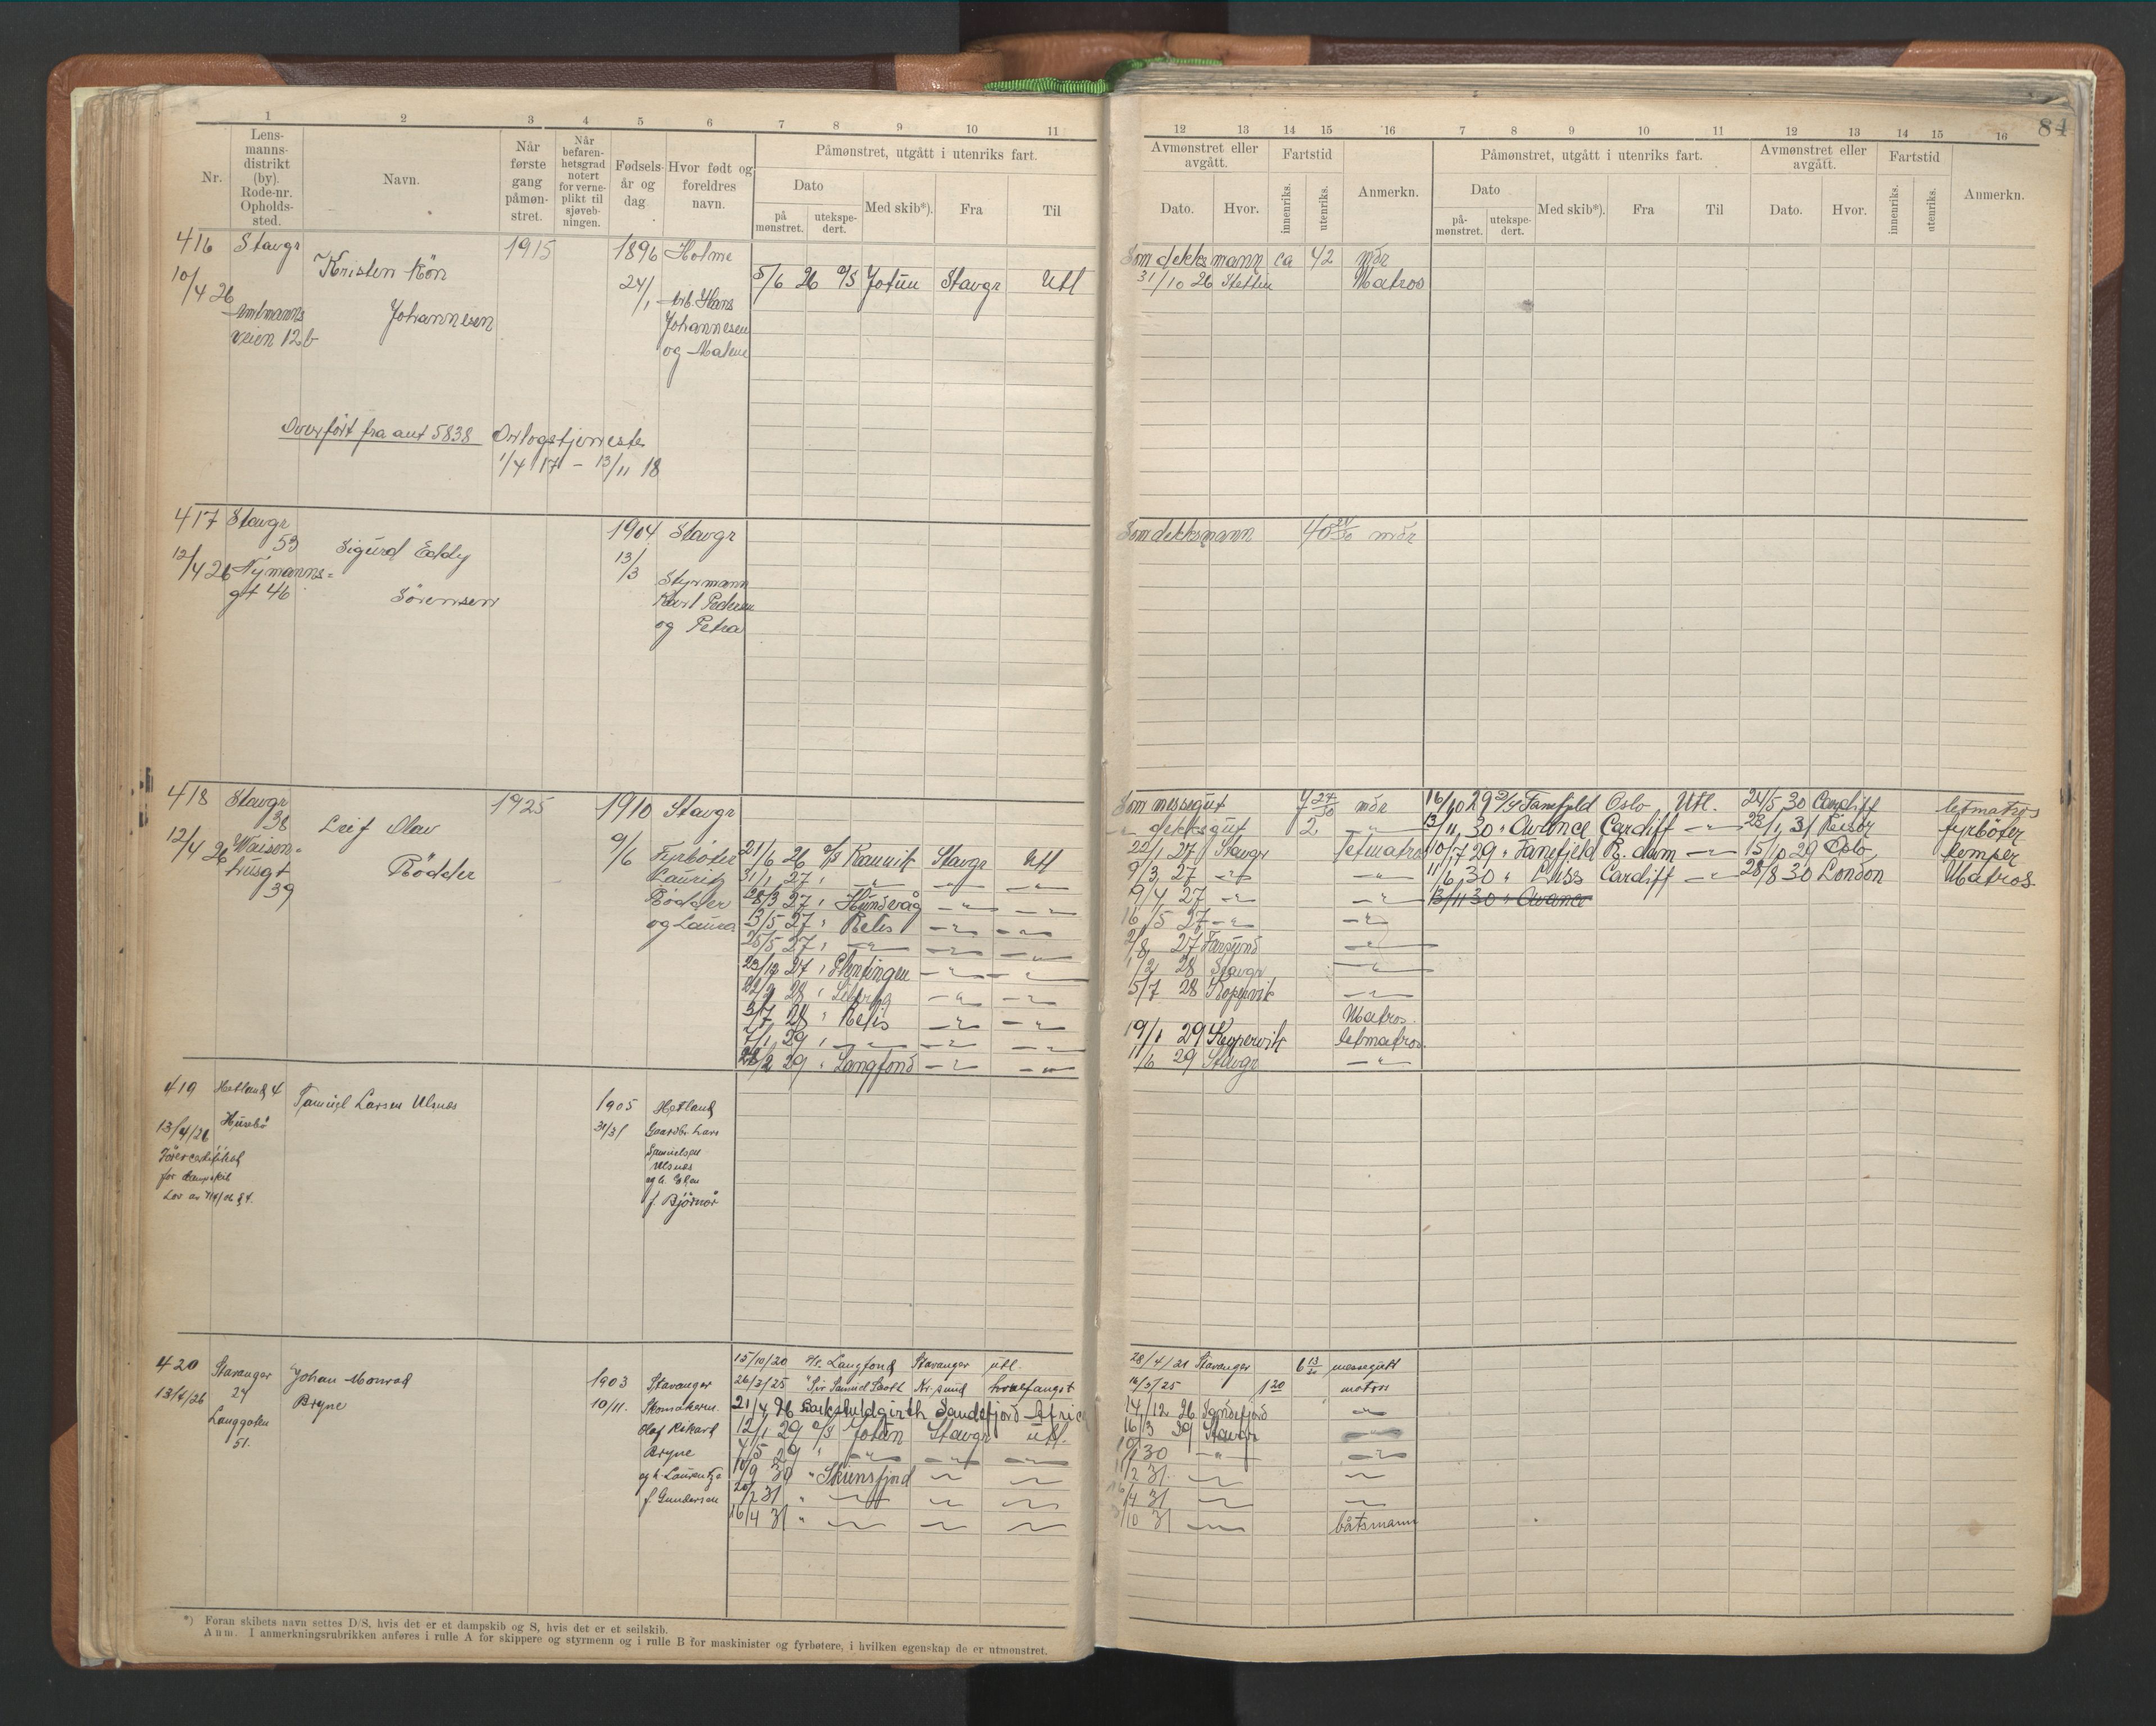 84
1 2 3 4 5 6 7 8 9 10 11
Nr.
Lens-
manns-
distrikt
(by).
Rode-nr.
Opholds-
sted.
Navn.
Når
første
gang
påmøn-
stret.
Når
befaren-
hetsgrad
notert
for verne-
plikt til
sjøveb-
ningen.
Fødsels-
år og
dag
Hvor født og
foreldres
navn.
Påmønstret, utgått i utenriks fart.
Dato
på
mønstret.
utekspe-
dert.
Med skib*).
Fra
Til
12 13 14 15 16 7 8 9 10 11 12 13 14 15 16
Avmønstret eller
avgått.
Dato.
Hvor.
Fartstid
innenriks.
utenriks.
Anmerkn.
Påmønstret, utgått i utenriks fart.
Dato
på-
mønstret.
utekspe-
dert.
Med skib*).
Fra
Til
Avmønstret eller
avgått.
Dato.
Hvor.
Fartstid
innenriks.
utenriks.
Anmerkn.
416 Stavgr
10/4 26
Amtmanns
veien 12b
Kristen Kön
Johannesen
1915
1896
24/1
Holme
arb. Hans
Johannesen
og Malene
5/6 26 D/S Jotun Stavgr Utl
Som dekksmann ca 42 mdr
31/10 26 Stettin Matros
Overfört fra ant 5838 Orlogstjeneste
1/4 17 - 13/11 18
417 Stavgr
53
12/4 26 Nymanns=
gt 46
Sigurd Eddy
Sörensen
1904
13/3
Stavgr
Styrmann
Karl Pedersen
og Petra
Som dekksmann 40 mdr
418 Stavgr
38
12/4 26 Waisen=
husgt
39
Leif Olav
Rödder
1925
1910
9/6
Stavgr
Fyrböter
Lauritz
Rödder
og Laura
21/6 26 D/S Ravnvik Stavgr Utl
31/1 27 " —"— —"— —"—
28/3 27 " Hundvåg —"— —"—
13/5 27 " Relis —"— —"—
25/5 27 " —"— —"— —"—
23/12 27 " —"— —"—
28 " —"— —"—
3/7 28 " Relis —"— —"—
7/1 29 " —"— —"— —"—
28/2 29 " Langfond —"— —"—
Som messegut 7 24/30 mdr
—"— dekksgut 2 —"—
22/1 27 Stavgr Letmatros
9/3 27 —"— —"—
9/4 27 —"— —"—
16/5 27 —"— —"—
2/8 27 Farsund —"—
1/2 28 Stavgr —"—
5/7 28 Kopervik —"—
Matros
19/1 29 Kopervik letmatros
11/6 29 Stavgr —"—
16/10 29 D/S Fanefjeld Oslo Utl. 24/5 30 Cardiff letmatros
13/11 30 " Avance Cardiff —"— 28/1 31 Risör fyrböter
10/7 29 " Fanefjeld R.dam —"— 15/10 29 Oslo lemper
11/6 30 " Cardiff —"— 28/8 30 London Matros
13/11 30 " Avance
419 Hetland 4
13/4/26 Husebö
Förercertifikat
for dampskib
Samuel Larsen Ulsnes
1905
31/31
Hetland
Gaardbr. Lars
Samuelsen
Ulsnes
og h. Elen
f. Björnör
420 Stavanger
13/4/26 24
Langgaten
51.
Johan Monrad
Bryne
1903
10/11.
Stavanger
Skomakerm.
Olaf Rikard
Bryne
og h. Laurentze
f. Gundersen
15/10/20 D/S. Langfond Stavanger utl.
26/2/25 " Sir Samuel Scott Kr.sund hvalfangst
21/4 26 Bark Sandefjord Africa
12/1 29 D/S Jotun Stavgr utl.
4/5 29 " —"— —"— —"—
10/9 30 " Skiensfjord —"— —"—
20/2 31 " —"— —"— —"—
16/4 31 " —"— —"— —"—
28/4/21 Stavanger 6 13/30 messegutt
16/3/25 1 20 matros
14/12 26 Sandefjord —"—
16/3 29 Stavgr —"—
30 —"— —"—
11/2 31 —"— —"—
16/4 31 —"— —"—
/10 31 —"— båtsmann
*) Foran skibets navn settes D/S, hvis det er et dampskib og S, hvis det er et seilskib.
Anm. I anmerkningsrubrikken anføres i rulle A for skippere og styrmenn og i rulle B for maskinister og fyrbøtere, i hvilken egenskap de er utmønstret.